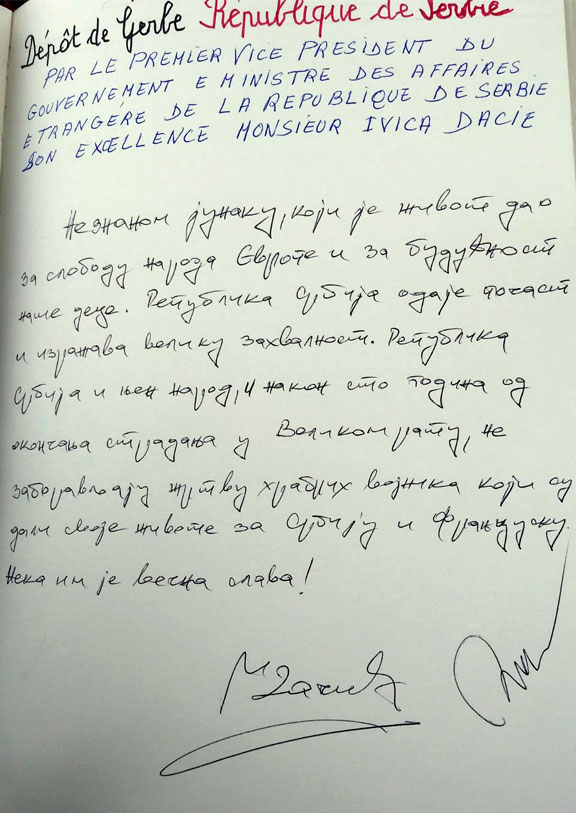 Dépôt de Gerbe République de Serbie
PAR LE PREMIER VICE PRESIDENT DU
GOUVERNEMENT E MINISTRE DES AFFAIRES
ETRANGÉRE DE LA REPUBLIQUE DE SERBIE
SON EXCELLENCE MONSIEUR IVICA DACIE
Незнаном јунаку, који је живот дао
за слободу народа Европе и за будућност
наше деце. Република Србија одаје почаст
и изражава велику захвалност. Република
Србија и њен народ, и након сто година од
окончања страдања у Великом рату, не
заборављају жртву храбрих војника који су
дали своје животе за Србију и Француску.
Нека им је вечна слава!